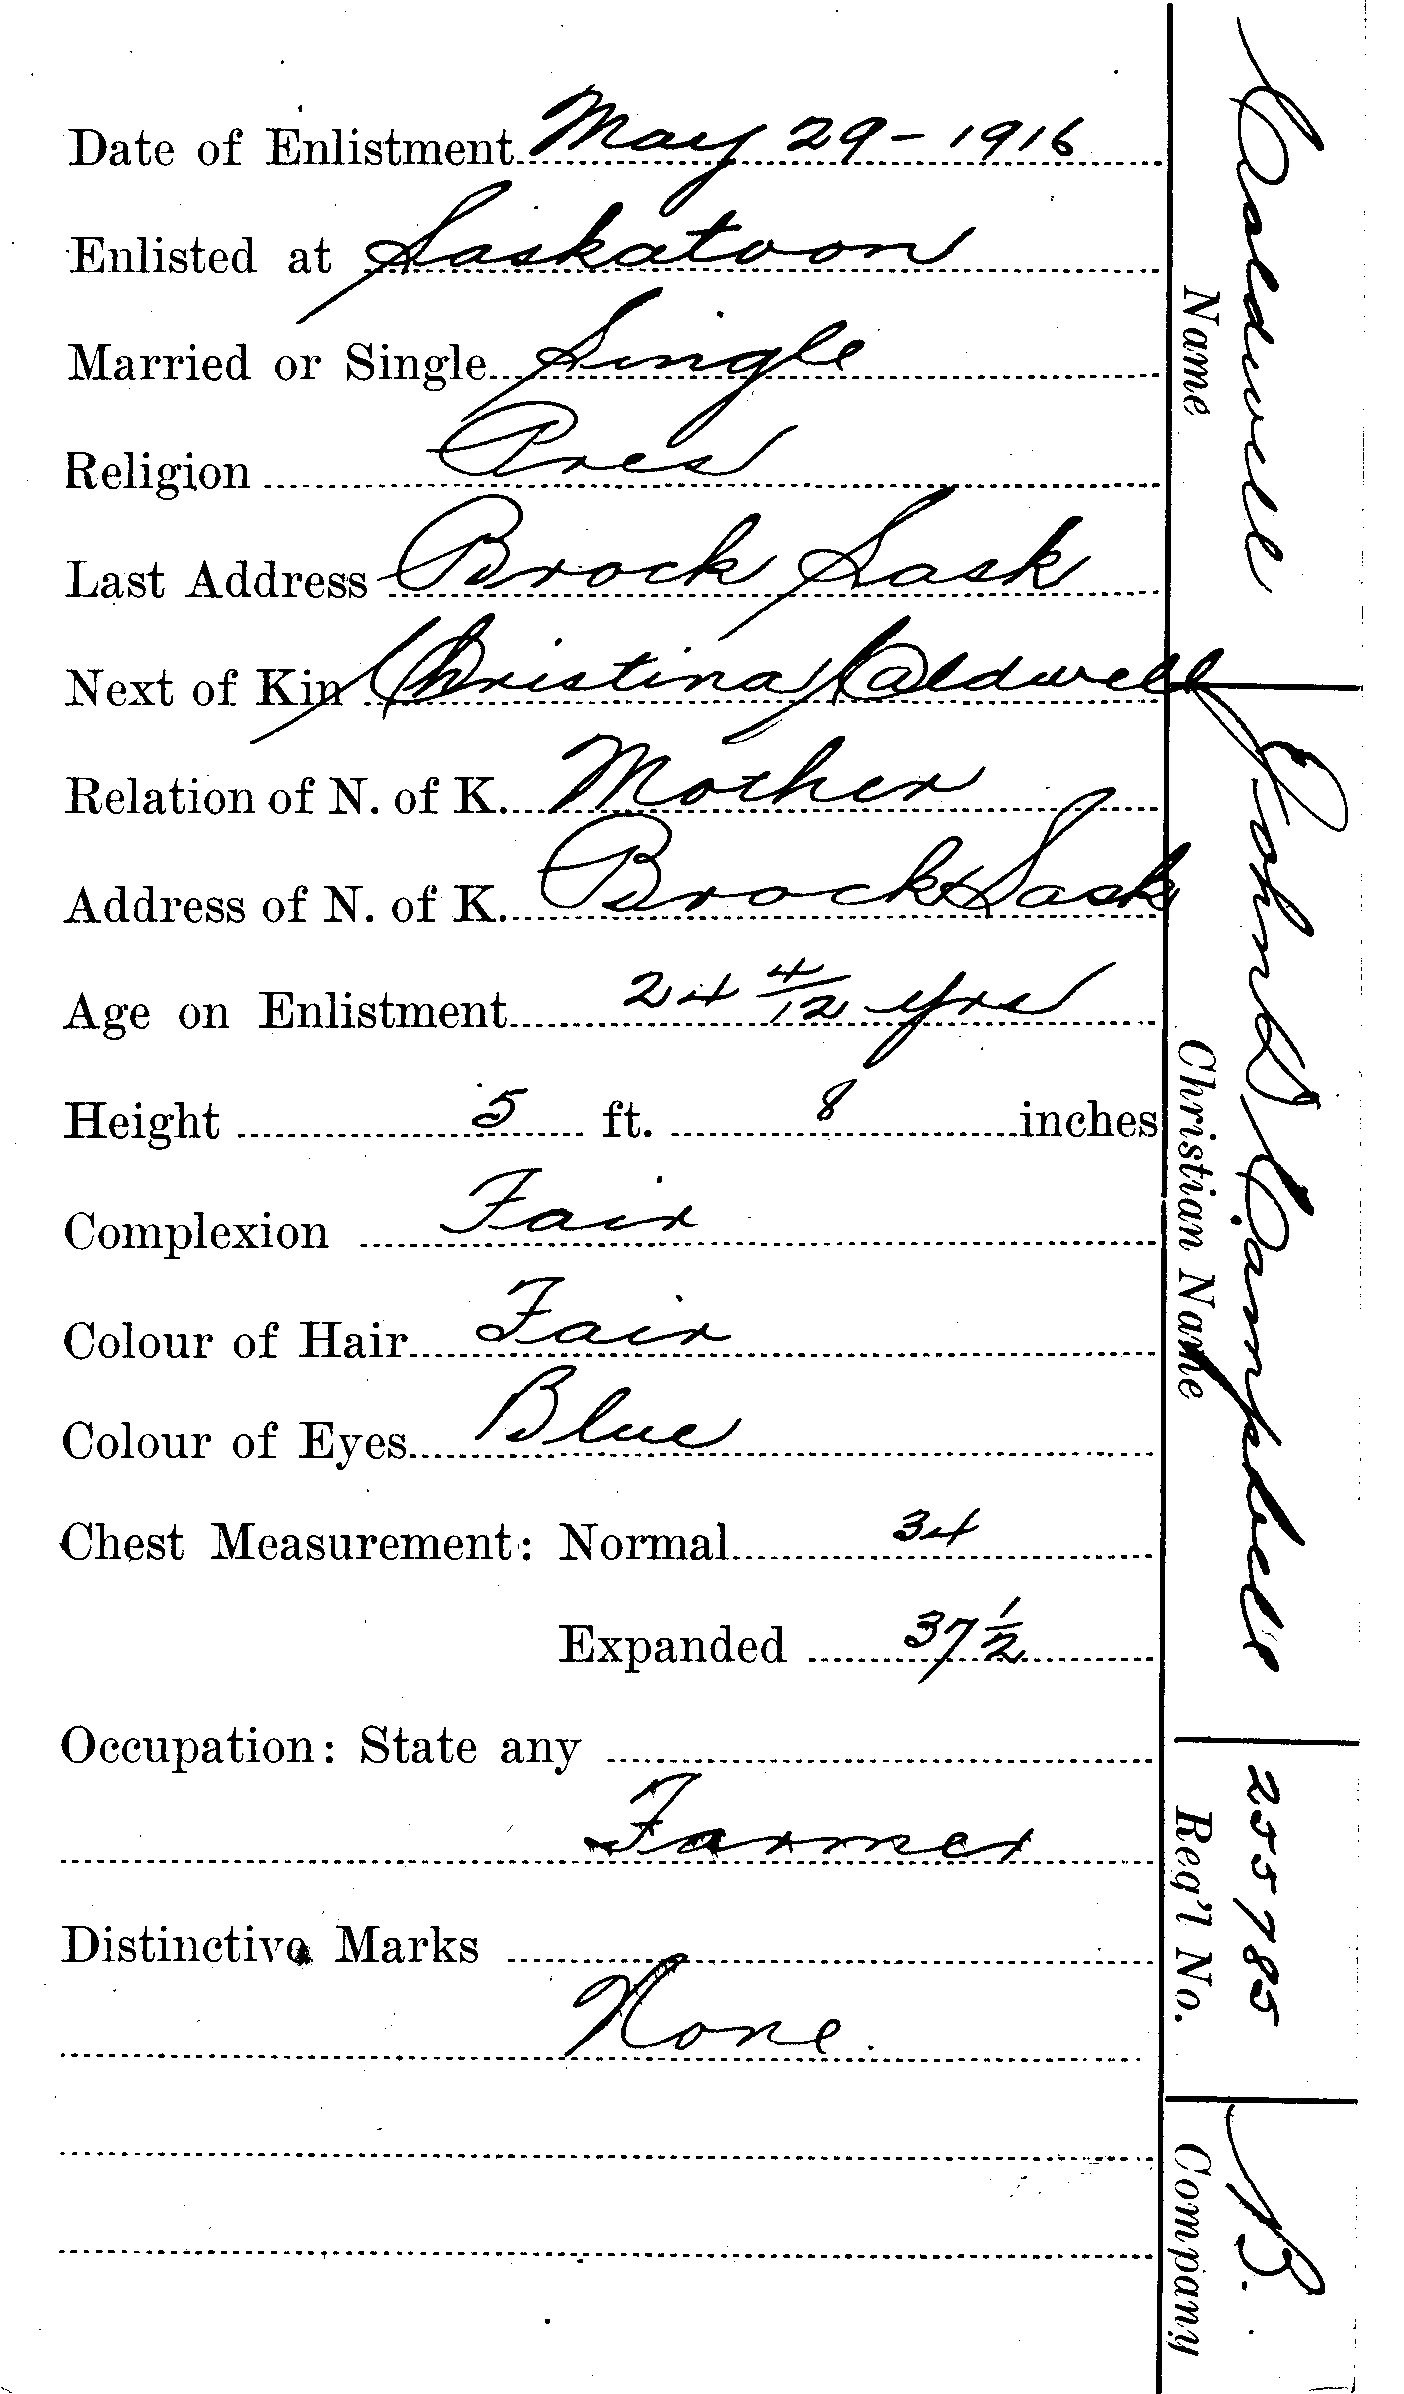 Date of Enlistment May 29 - 1916
Enlisted at Saskatoon
Married or Single Single
Religion Pres
Last Address Brock Sask
Next of Kin Christina Caldwell
Relation of N. of K. Mother
Address of N. of K. Brock Sask
Age on Enlistment 24 4/12 yrs
Height 5 ft. 8 inches
Complexion Fair
Colour of Hair Fair
Colour of Eyes Blue
Chest Measurement: Normal 34
Expanded 37 1/2
Occupation: State any
Farmer
Distinctive Marks
None.
Caldwell
Name
John Campbell
Christian Name
255785
Reg'l No.
B.
Company